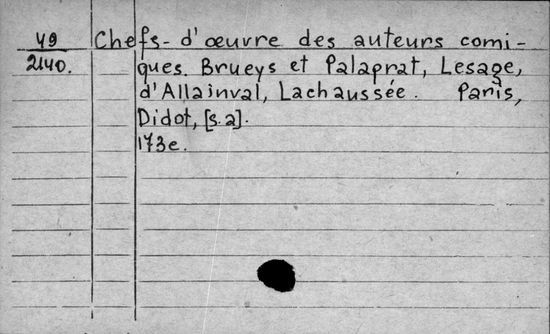 49 Chefs-d'œuvre des auteurs comi-
2140. ques. Brueys et Palaprat, Lesage,
d'Allainval, Lachaussée. Paris,
Didot, [s.a].
173e.